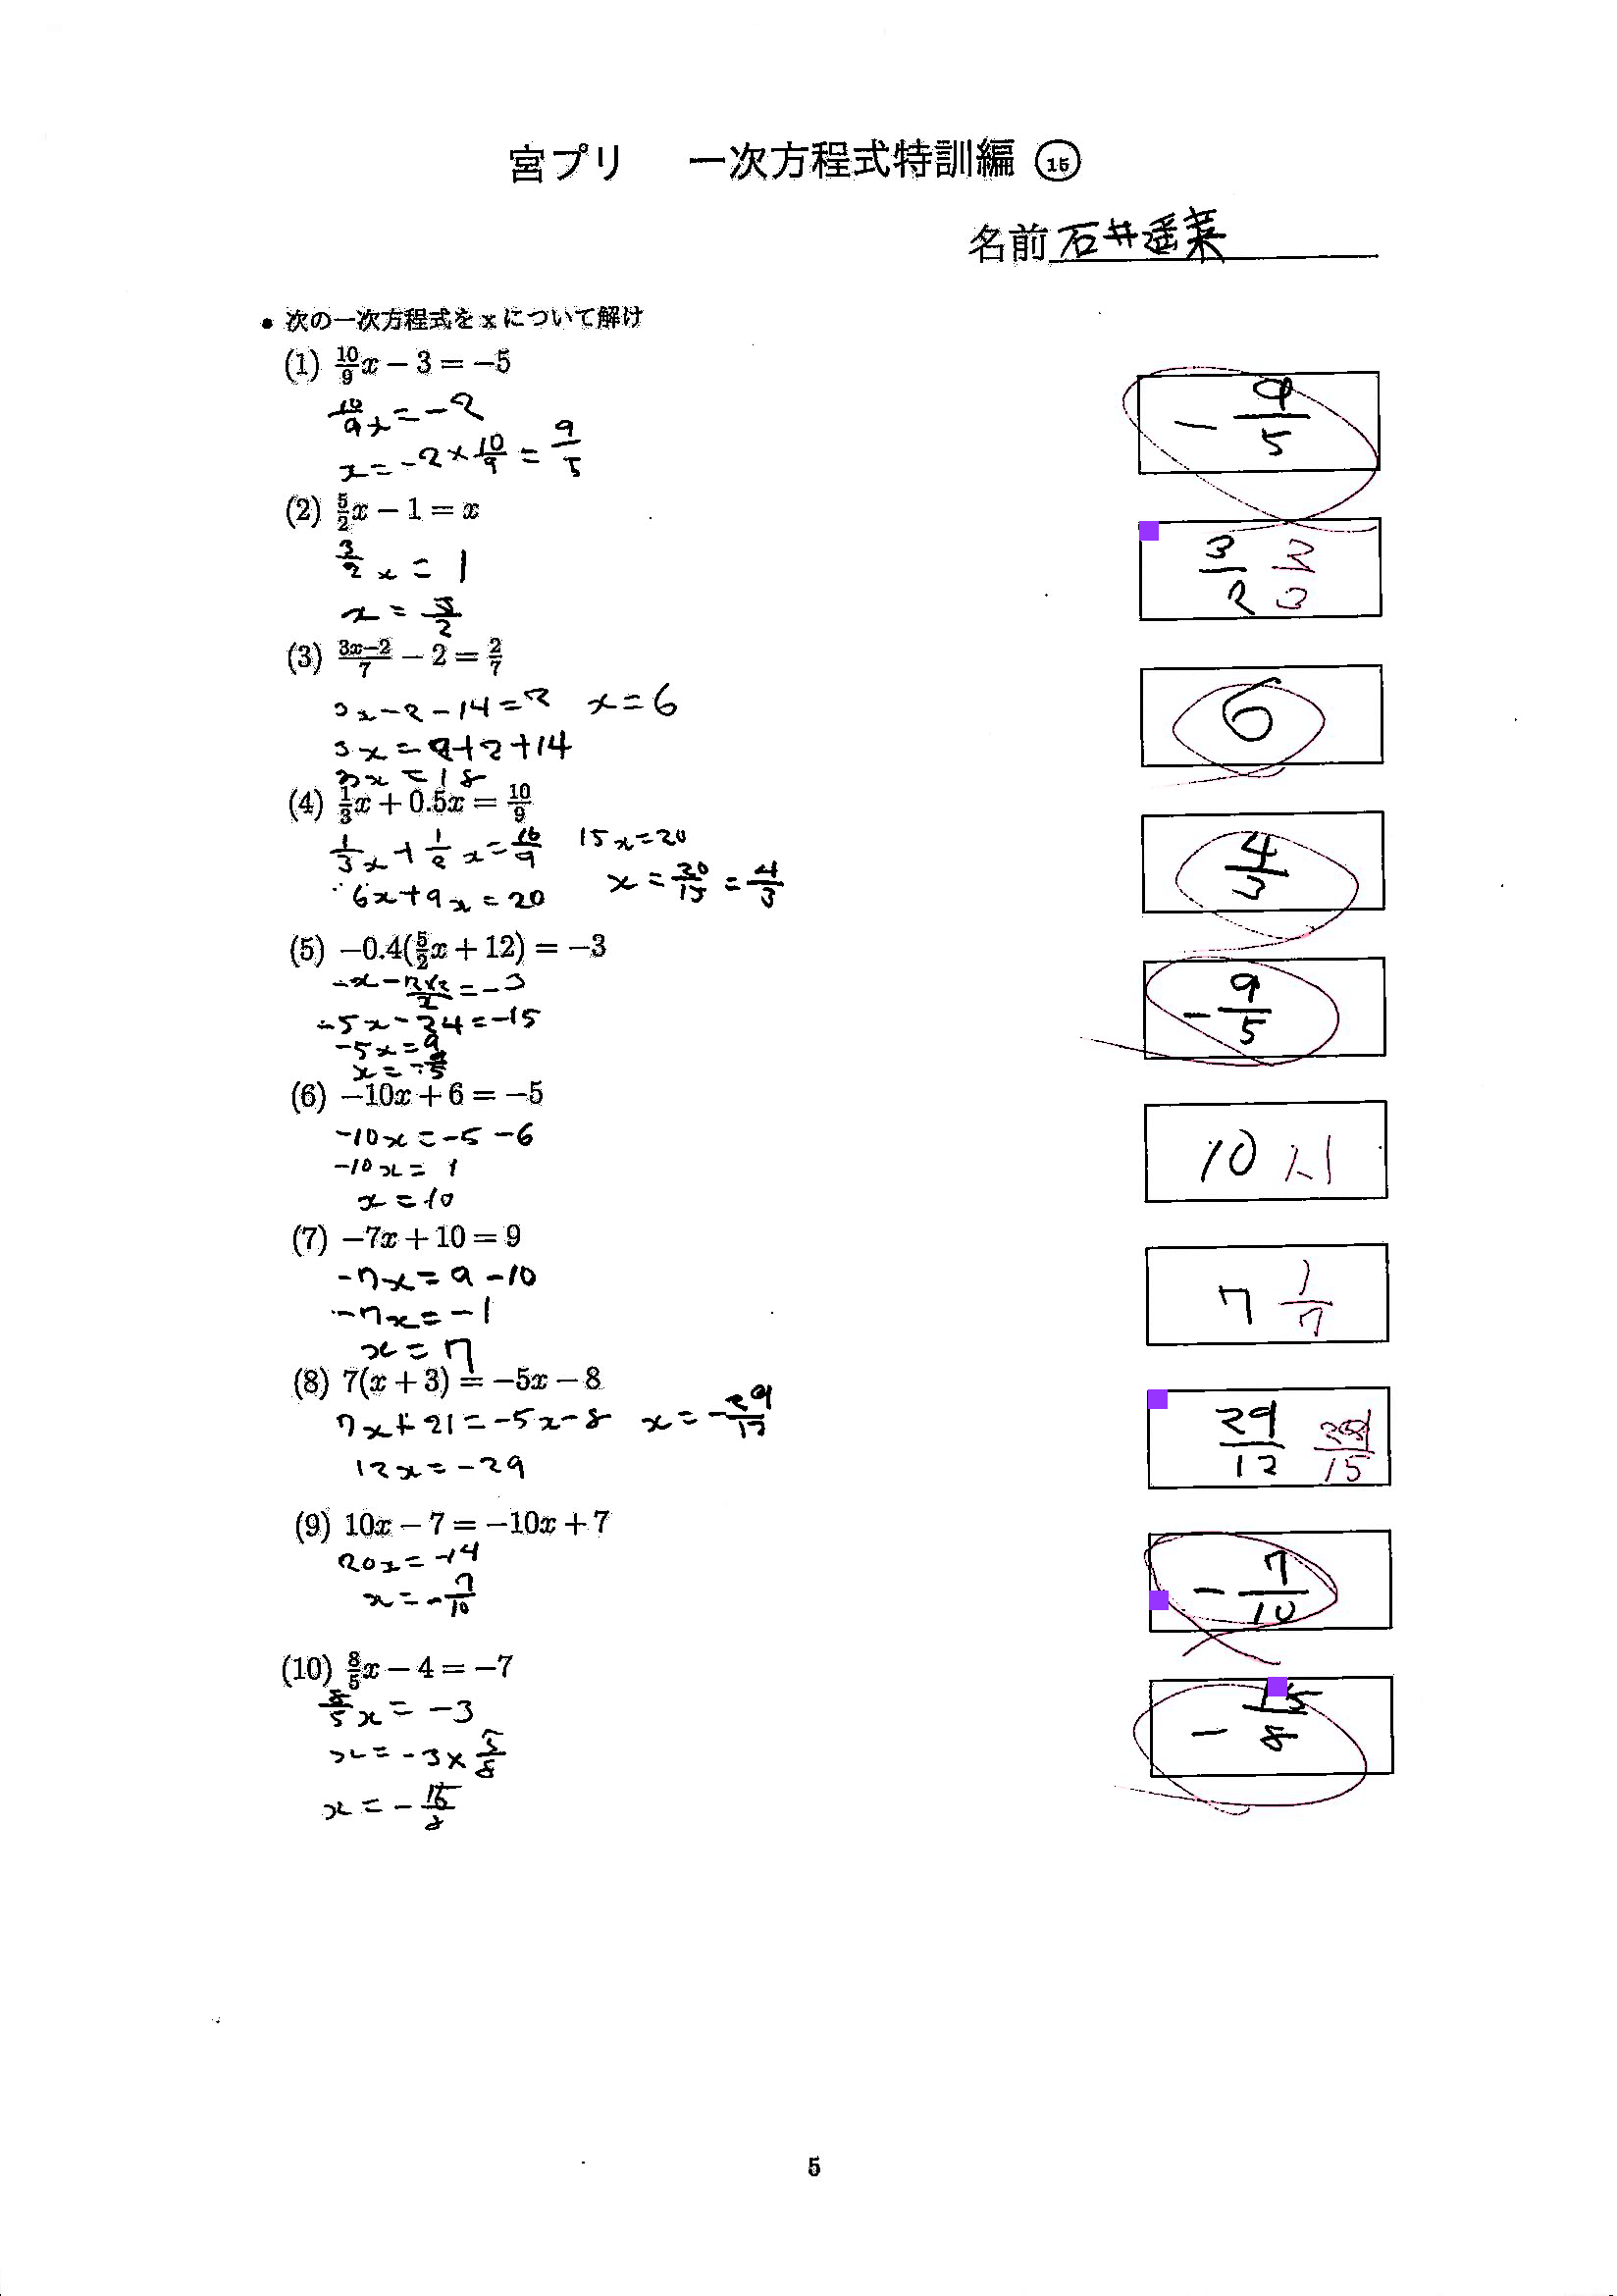 宮プリ 一次方程式特訓編 ⑮
名前 石井遥菜
• 次の一次方程式をxについて解け
(1) 10/9x − 3 = −5
10/9x = −2
x = −2 × 10/9 = 9/5
− 9/5
(2) 5/2x − 1 = x
3/2x = 1
x = 3/2
3/2 2/3
(3) (3x−2)/7 − 2 = 2/7
3x − 2 − 14 = 2 x = 6
3x = 2 + 2 + 14
3x = 18
6
(4) 1/3x + 0.5x = 10/9
1/3x + 1/2x = 10/9 15x = 20
6x + 9x = 20 x = 20/15 = 4/3
4/3
(5) −0.4(5/2x + 12) = −3
−5x − 24 = −15
−5x = 9
x = −9/5
− 9/5
(6) −10x + 6 = −5
−10x = −5 − 6
−10x = 1
x = 10
10 1.1
(7) −7x + 10 = 9
−7x = 9 − 10
−7x = −1
x = 7
7 1/7
(8) 7(x + 3) = −5x − 8
7x + 21 = −5x − 8 x = −29/12
12x = −29
29/12
(9) 10x − 7 = −10x + 7
20x = −14
x = −7/10
− 7/10
(10) 8/5x − 4 = −7
8/5x = −3
x = −3 × 5/8
x = −15/8
− 15/8
5